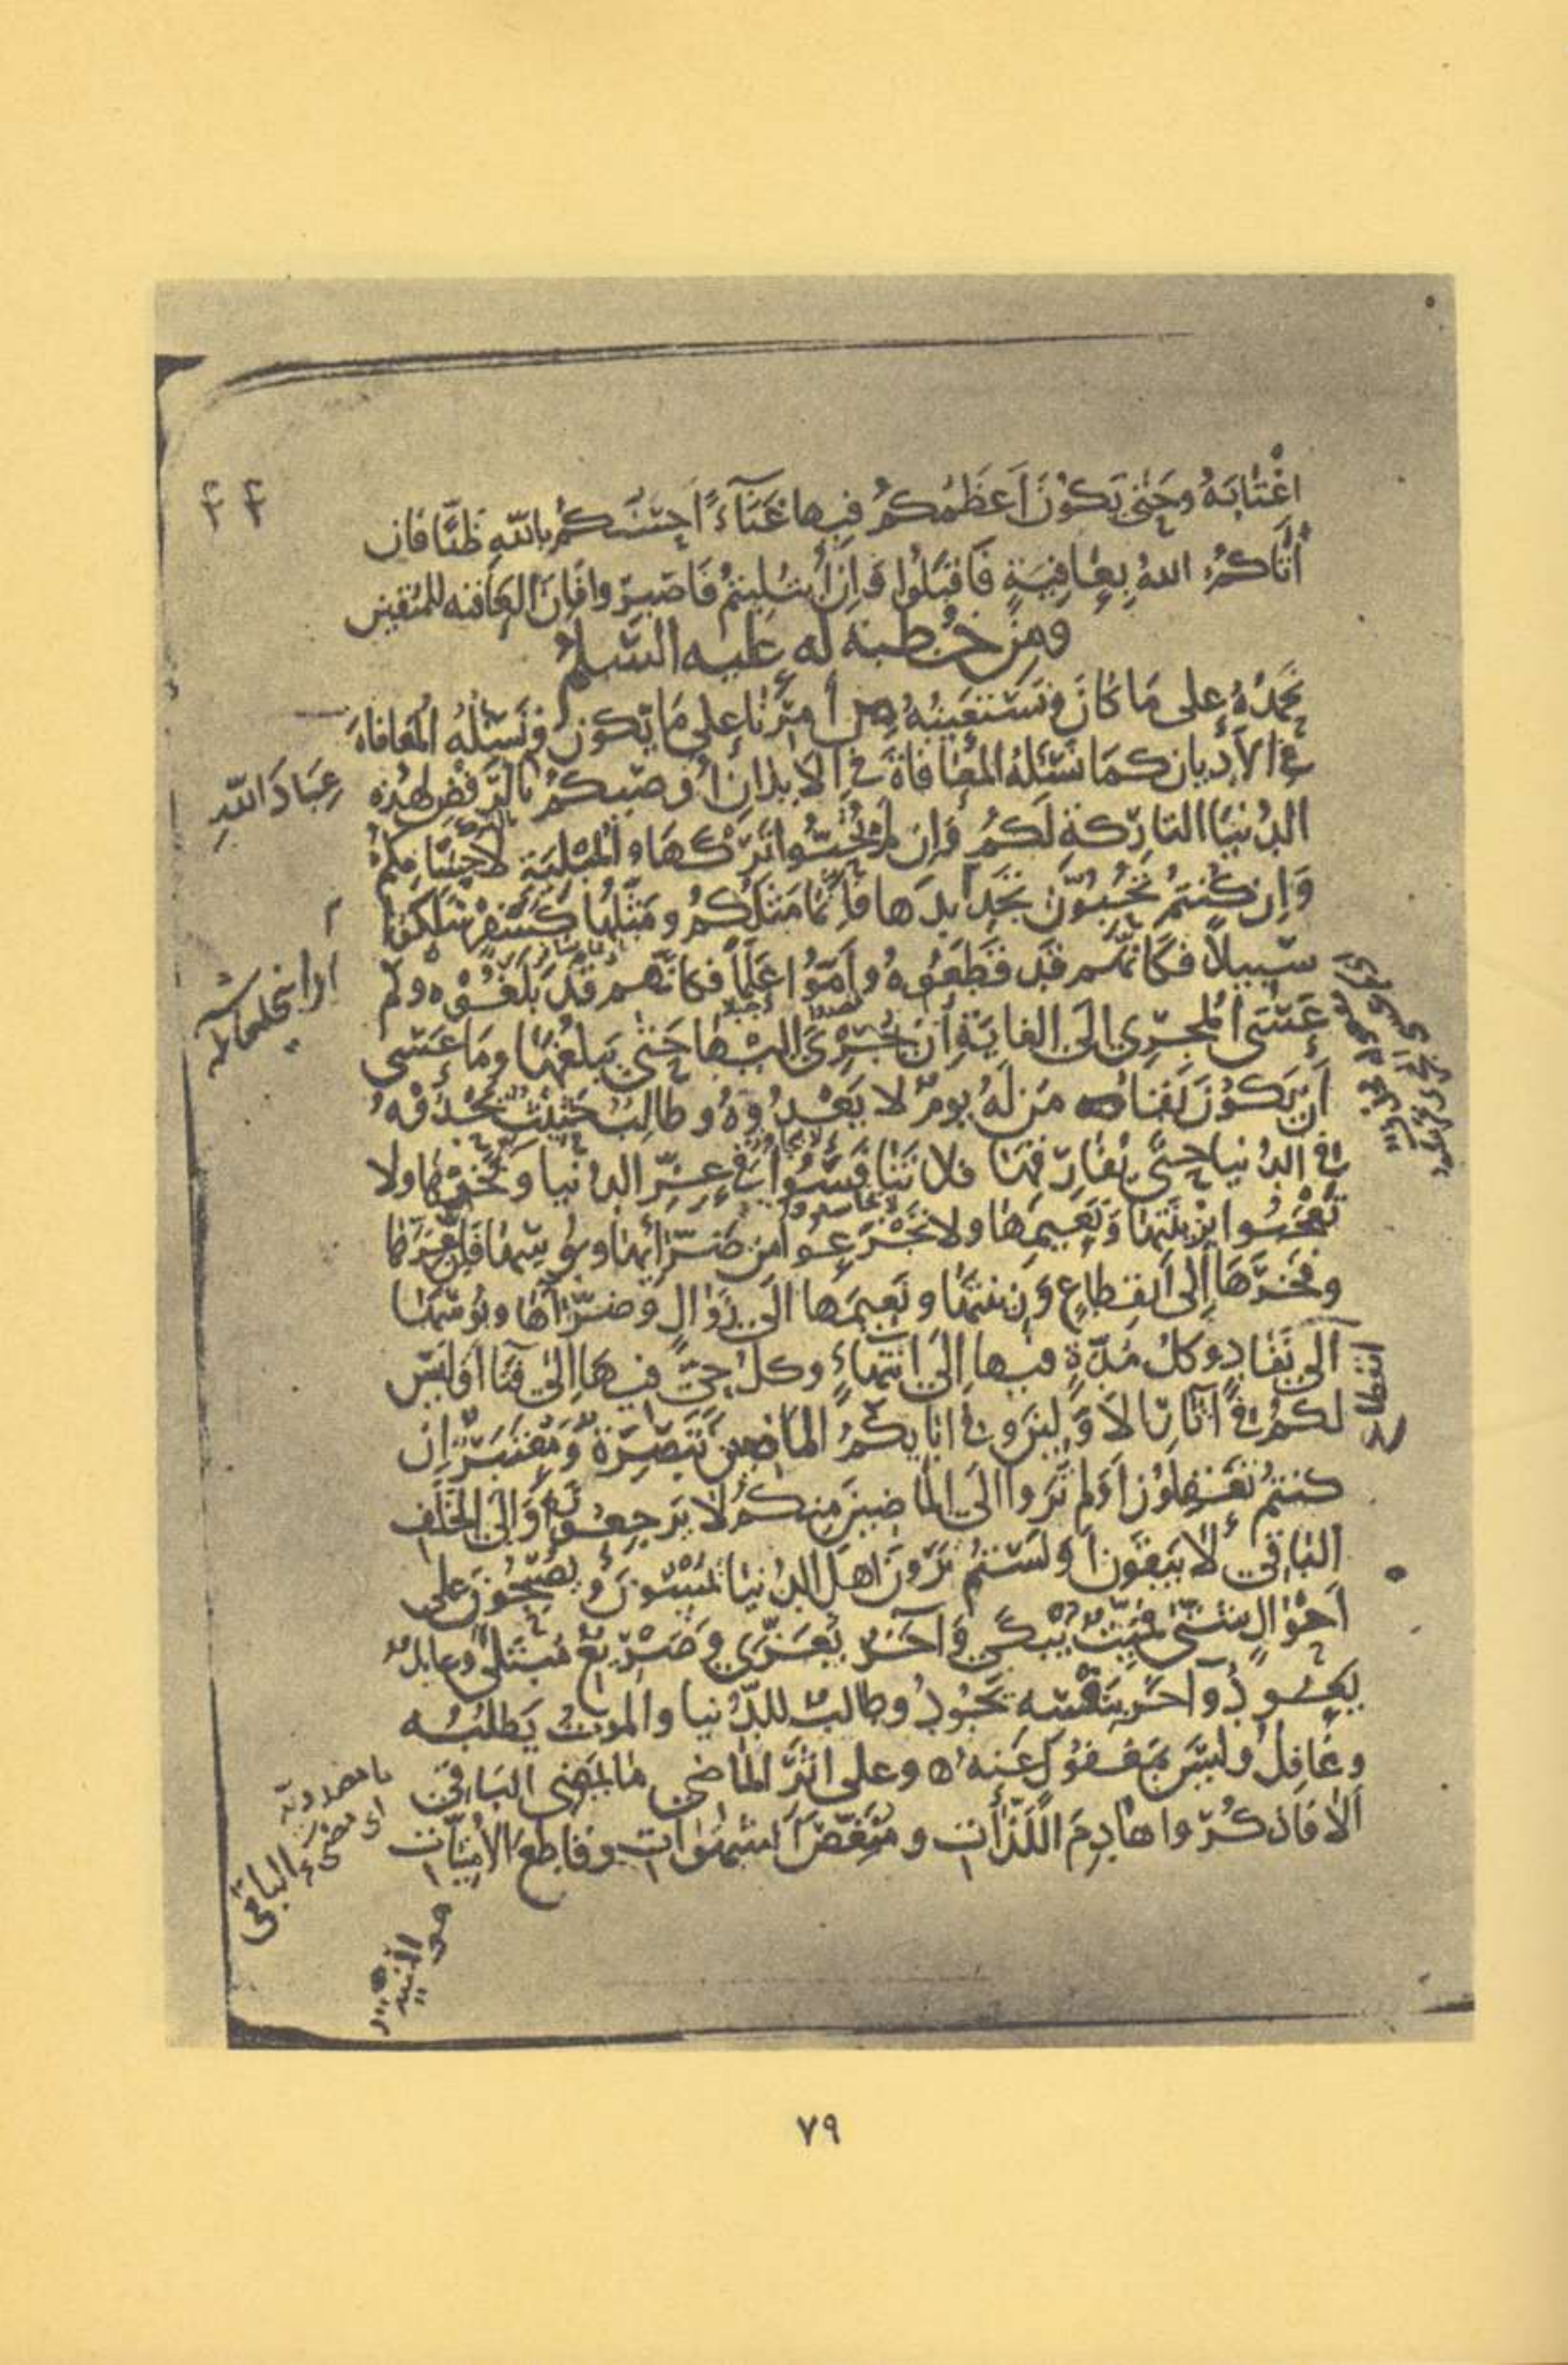 ٤٤
اغْتَابَهُ وحَتَّى يَكُوْنَ اَعظَمُكُمْ فِيها غَنَآءً اَحسَنُكُمْ بِاللّهِ ظَنًّا فَاِن
أَتَاكُمُ اللهُ بِعَافِيَةٍ فَاقبَلُوا وَاِنِ ابْتُلِيتُمْ فَاصبِرُوا فَاِنَّ العَاقبه للمُتقين
ومِن خُطبَة لَه عليه السَّلامُ
نَحمَدُهُ على مَا كانَ ونَستَعينُهُ مِن أَمرِنَا على مَا يَكون ونَسئَلُهُ المُعَافاةَ
في الأديان كمَا نَسئَلُهُ المُعَافاةَ في الأبدانِ أُوصيكُمْ بالرَّفضِ لِهذِه
عِبَادَ اللّهِ
الدُّنيَا التارِكةِ لَكُم وَاِن لَم تُحِبُّوا تَركَهَا والمُبْلِيَةِ لاَجسَامِكُمْ
وَاِن كُنتُم تُحِبُّوْنَ تَجدِيدَها فَاِنَّمَا مَثَلُكُمْ ومَثَلُهَا كَسَفْرٍ سَلَكُوا
سَبِيلاً فكَاَنَّهُم قَد قَطَعُوهُ وأَمُّوا عَلَماً فكاَنَّهُم قَد بَلَغُوْه وكم
عَسَى المُجرِي اِلَى الغايَةِ أَن يَجْرِىَ اِلَيها حَتى يَبلُغَهَا ومَا عَسَى
أَن يَكُوْنَ بَقَاءُ مَن لَهُ يومٌ لا يَعْدُوهُ وطالِبٌ حَثيثٌ يَحْدُوْهُ
في الدُّنيا حتى يُفَارِقَهَا فلا تَنَافَسُوا في عِزِّ الدُّنيا وفَخْرِهَا ولا
تَعْجَبُوا بزِينَتِهَا وَنَعِيمِهَا ولا تَجْزَعُوا مِن ضَرَّائِهَا وبُؤسِهَا فَاِنَّ عِزَّهَا
وفَخرَهَا اِلى اَنقِطَاعٍ وَزِينَتَهَا ونَعِيمَها اِلَى زَوَالٍ وضَرَّآءَهَا وبُؤسَهَا
اِلى نَفَادٍ وكلُّ مُدَّةٍ فيها اِلَى انتِهَاءٍ وكلُّ حَيٍّ فِيهَا اِلى فَنَاءٍ اَوَلَيسَ
لكُمْ في آثارِ الاَوَّلِينَ وفي اَبائِكُمُ المَاضِينَ تَبْصِرَةٌ ومُعْتَبَرٌ اِن
كنتُم تَعقِلُوْنَ اَوَلَم تَرَوا اِلَى المَاضِينَ مِنكُمْ لاَ يَرجِعُوْنَ وَاِلَى الخَلَفِ
البَاقي لاَ يَبقَونَ اَوَلَستُم تَرَوْنَ اَهلَ الدُّنيَا يُمْسُونَ ويُصْبِحُوْنَ على
اَحْوَالٍ شَتّى فَمَيِّتٌ يُبْكَى وَآخَرُ يُعَزَّى وصَرِيعٌ مُبتَلىً وعائِدٌ
يَعُودُ وآخَرُ بِنَفْسِه يَجُودُ وطالبٌ للدُّنيا والمَوتُ يَطلُبُه
وغَافِلٌ ولَيسَ بِمَغفُوْلٍ عَنهُ ه وعلى اثَرِ المَاضِي مَا يَمضِي البَاقي
اَلاَ فَاذكُرُوا هَادِمَ اللَّذَّاتِ ومُنَغِّصَ الشَّهَوَاتِ وقَاطِعَ الأُمنِيَّات
ما مصدريّة
اى مضىّ الباقى
انقطاع
٧٩